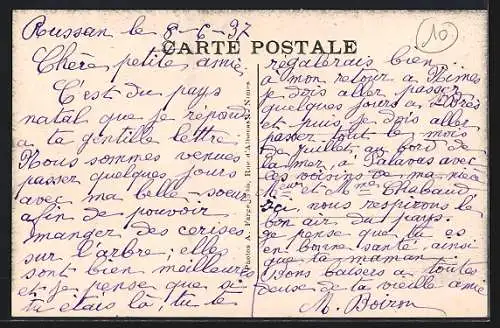 Russan le 8-6-37
CARTE POSTALE
10
Chère petite amie
C'est du pays
natal que je répond
a ta gentille lettre
Nous sommes venues
passer quelques jours
avec ma belle-soeur
afin de pouvoir
manger des cerises
sur l'arbre; elles
sont bien meilleures
et je pense que si
tu étais là, tu te
Photos A. Rue d'Alsace Nîmes
régalerais bien
a mon retour a Nîmes
je dois aller passer
quelques jours a
et puis je dois aller
passer tout le mois
de juillet au bord de
la mer, a Palavas avec
les voisins de ma nièce
Mr et Mme Chabaud
Ici nous respirons le
bon air du pays.
Je pense que tu es
en bonne santé, ainsi
que ta maman.
Bons baisers a toutes
deux de la vieille amie
M.